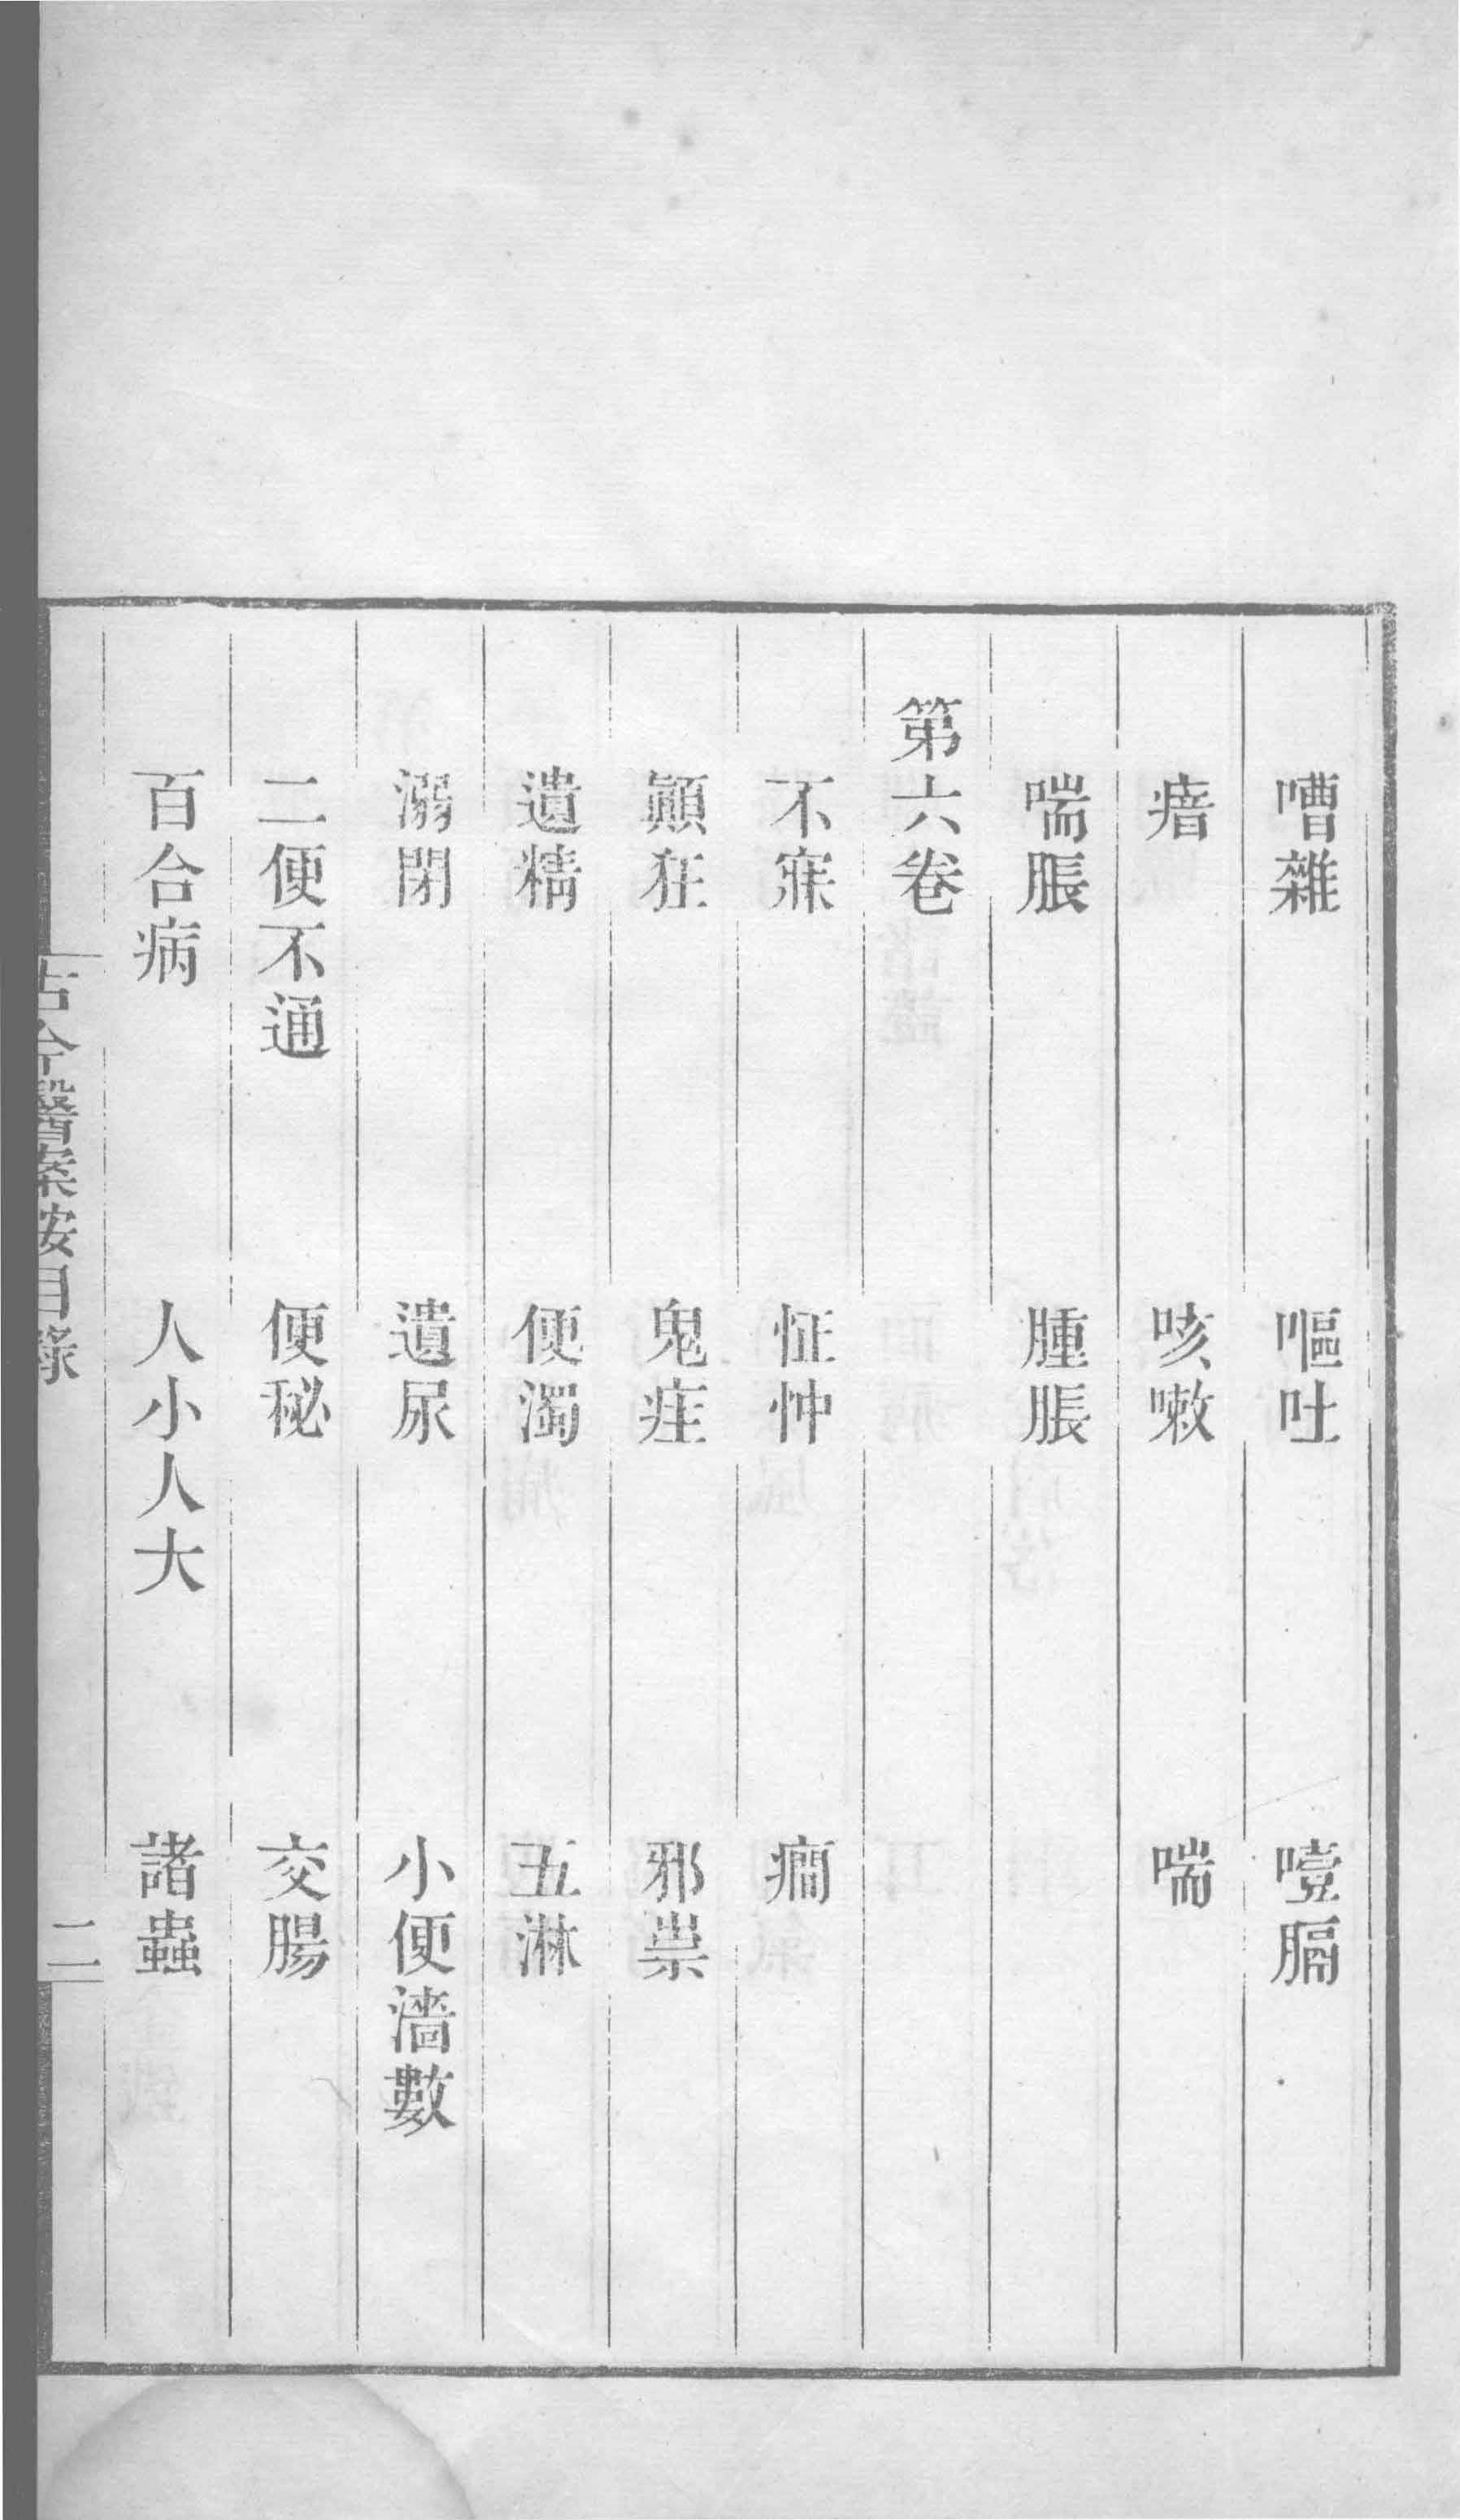 嘈雜　嘔吐　噎膈
瘖　咳嗽　喘
喘脹　腫脹
第六卷
不寐　怔忡　癎
顚狂　鬼疰　邪祟
遺精　便濁　五淋
溺閉　遺尿　小便濇數
二便不通　便秘　交腸
百合病　人小人大　諸蟲
古今醫案按目錄　二